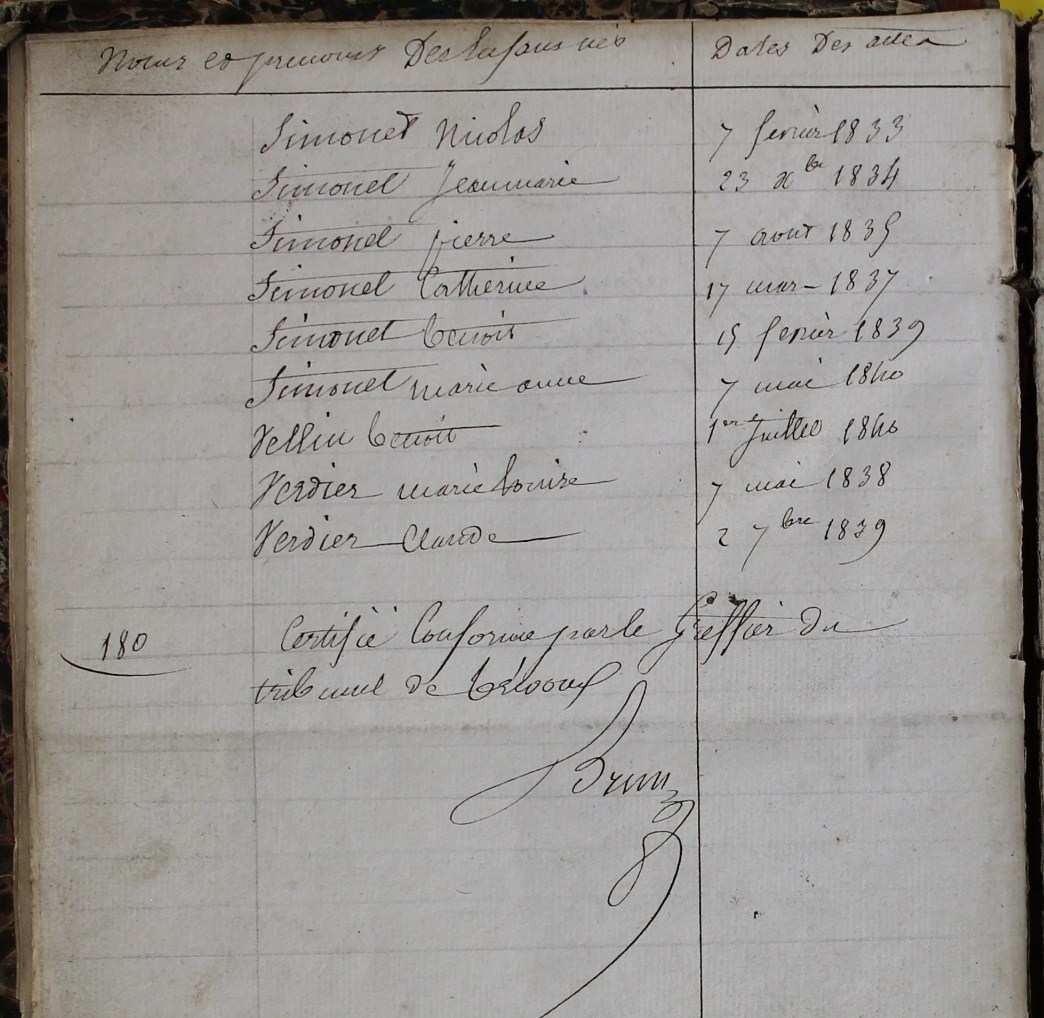 Noms et prenoms Des Enfans nés Dates Des actes
Simonet Nicolas 7 fevrier 1833
Simonet Jeanmarie 23 xbre 1834
Simonet pierre 7 aout 1835
Simonet Catherine 17 mars 1837
Simonet Benoit 15 fevrier 1839
Simonet marie anne 7 mai 1840
Vellin Benoit 1er Juillet 1840
Verdier marie Louise 7 mai 1838
Verdier Claude 2 7bre 1839
180 Certifié Conforme par le Greffier Du
tribunal de trévoux
Brun